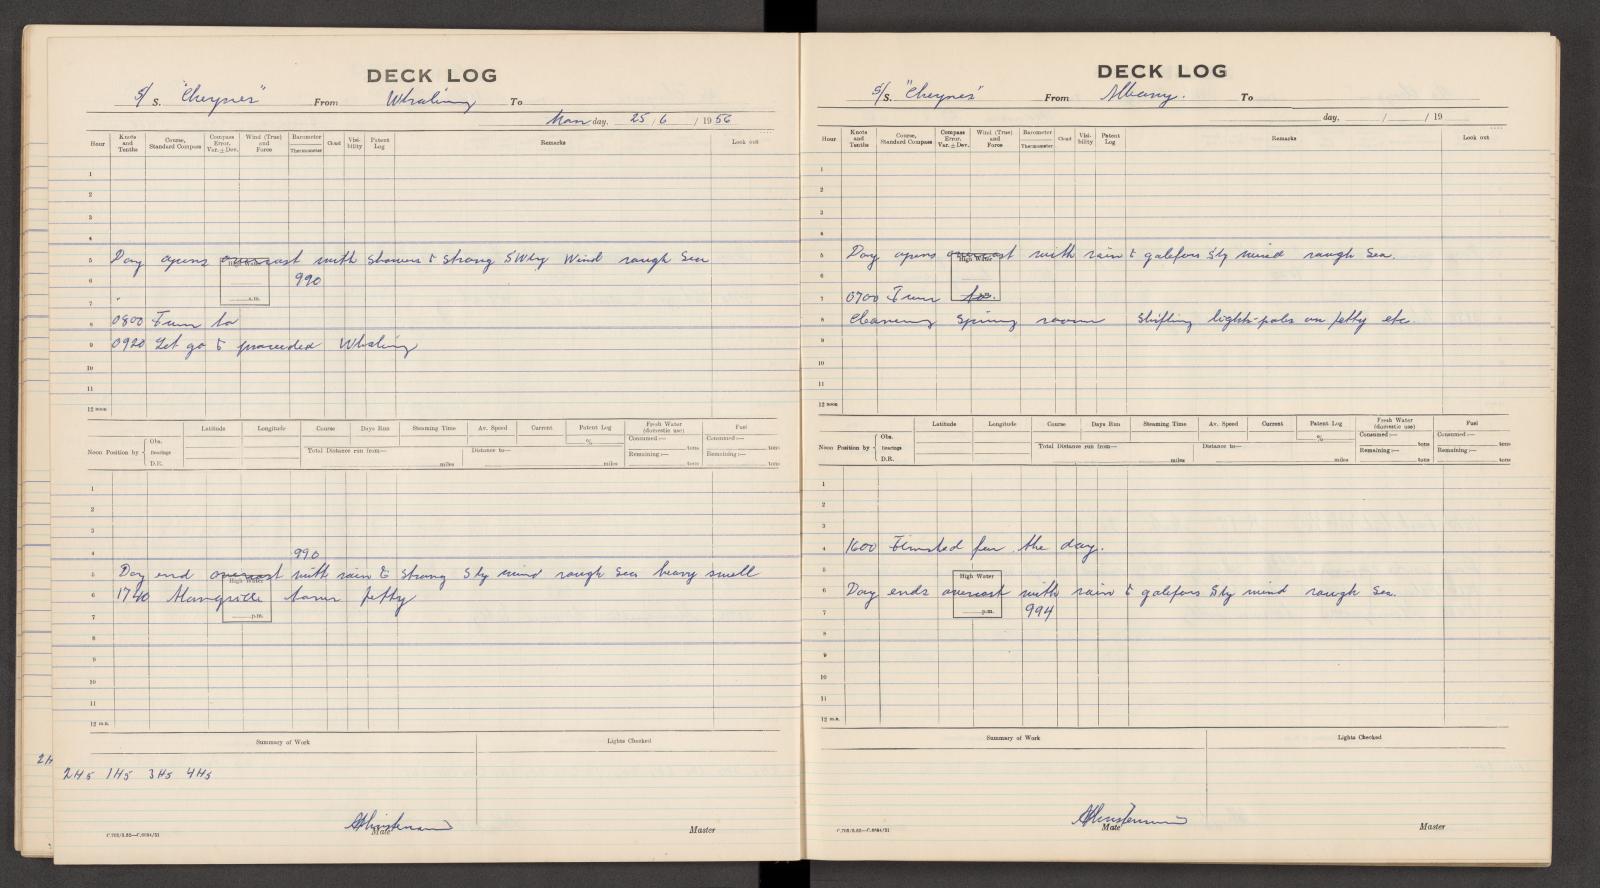 DECK LOG
S/S. "Cheynes" From Whaling To
Monday, 25/6/1956
Hour Knots and Tenths Course, Standard Compass Compass Error. Var. ± Dev. Wind (True) and Force Barometer Thermometer Cloud Visibility Patent Log Remarks Look out
1
2
3
4
5 Day opens overcast with showers & strong SWly Wind rough Sea
High Water
6 990
7 a.m.
8 0800 Turn to
9 0920 Let go & proceeded Whaling
10
11
12 noon
Latitude Longitude Course Days Run Steaming Time Av. Speed Current Patent Log % Fresh Water (domestic use) Fuel
Noon Position by Obs. Bearings D.R.
Consumed:— tons Consumed:—
Total Distance run from— miles Distance to— miles Remaining:— tons Remaining:— tons
1
2
3
4 990
5 Day end overcast with rain & strong Sly wind rough Sea heavy swell
High Water
6 1740 alongside tanur Jetty
7 p.m.
8
9
10
11
12 m.n.
Summary of Work Lights Checked
2Hs 1Hs 3Hs 4Hs
Mate Master
C.702/3.52—C.6684/51
DECK LOG
S/S. "Cheynes" From Albany. To
day, / / 19
Hour Knots and Tenths Course, Standard Compass Compass Error. Var. ± Dev. Wind (True) and Force Barometer Thermometer Cloud Visibility Patent Log Remarks Look out
1
2
3
4
5 Day opens overcast with rain & galefors Sly wind rough Sea.
High Water
6
7 0700 Turn to.
8 Cleaning Spring room Shifting light-poles on Jetty etc
9
10
11
12 noon
Latitude Longitude Course Days Run Steaming Time Av. Speed Current Patent Log % Fresh Water (domestic use) Fuel
Noon Position by Obs. Bearings D.R.
Consumed:— tons Consumed:—
Total Distance run from— miles Distance to— miles Remaining:— tons Remaining:— tons
1
2
3
4 1600 Finished for the day.
5
High Water
6 Day ends overcast with rain & galefors Sly wind rough Sea.
7 p.m. 994
8
9
10
11
12 m.n.
Summary of Work Lights Checked
Mate Master
C.702/3.52—C.6684/51